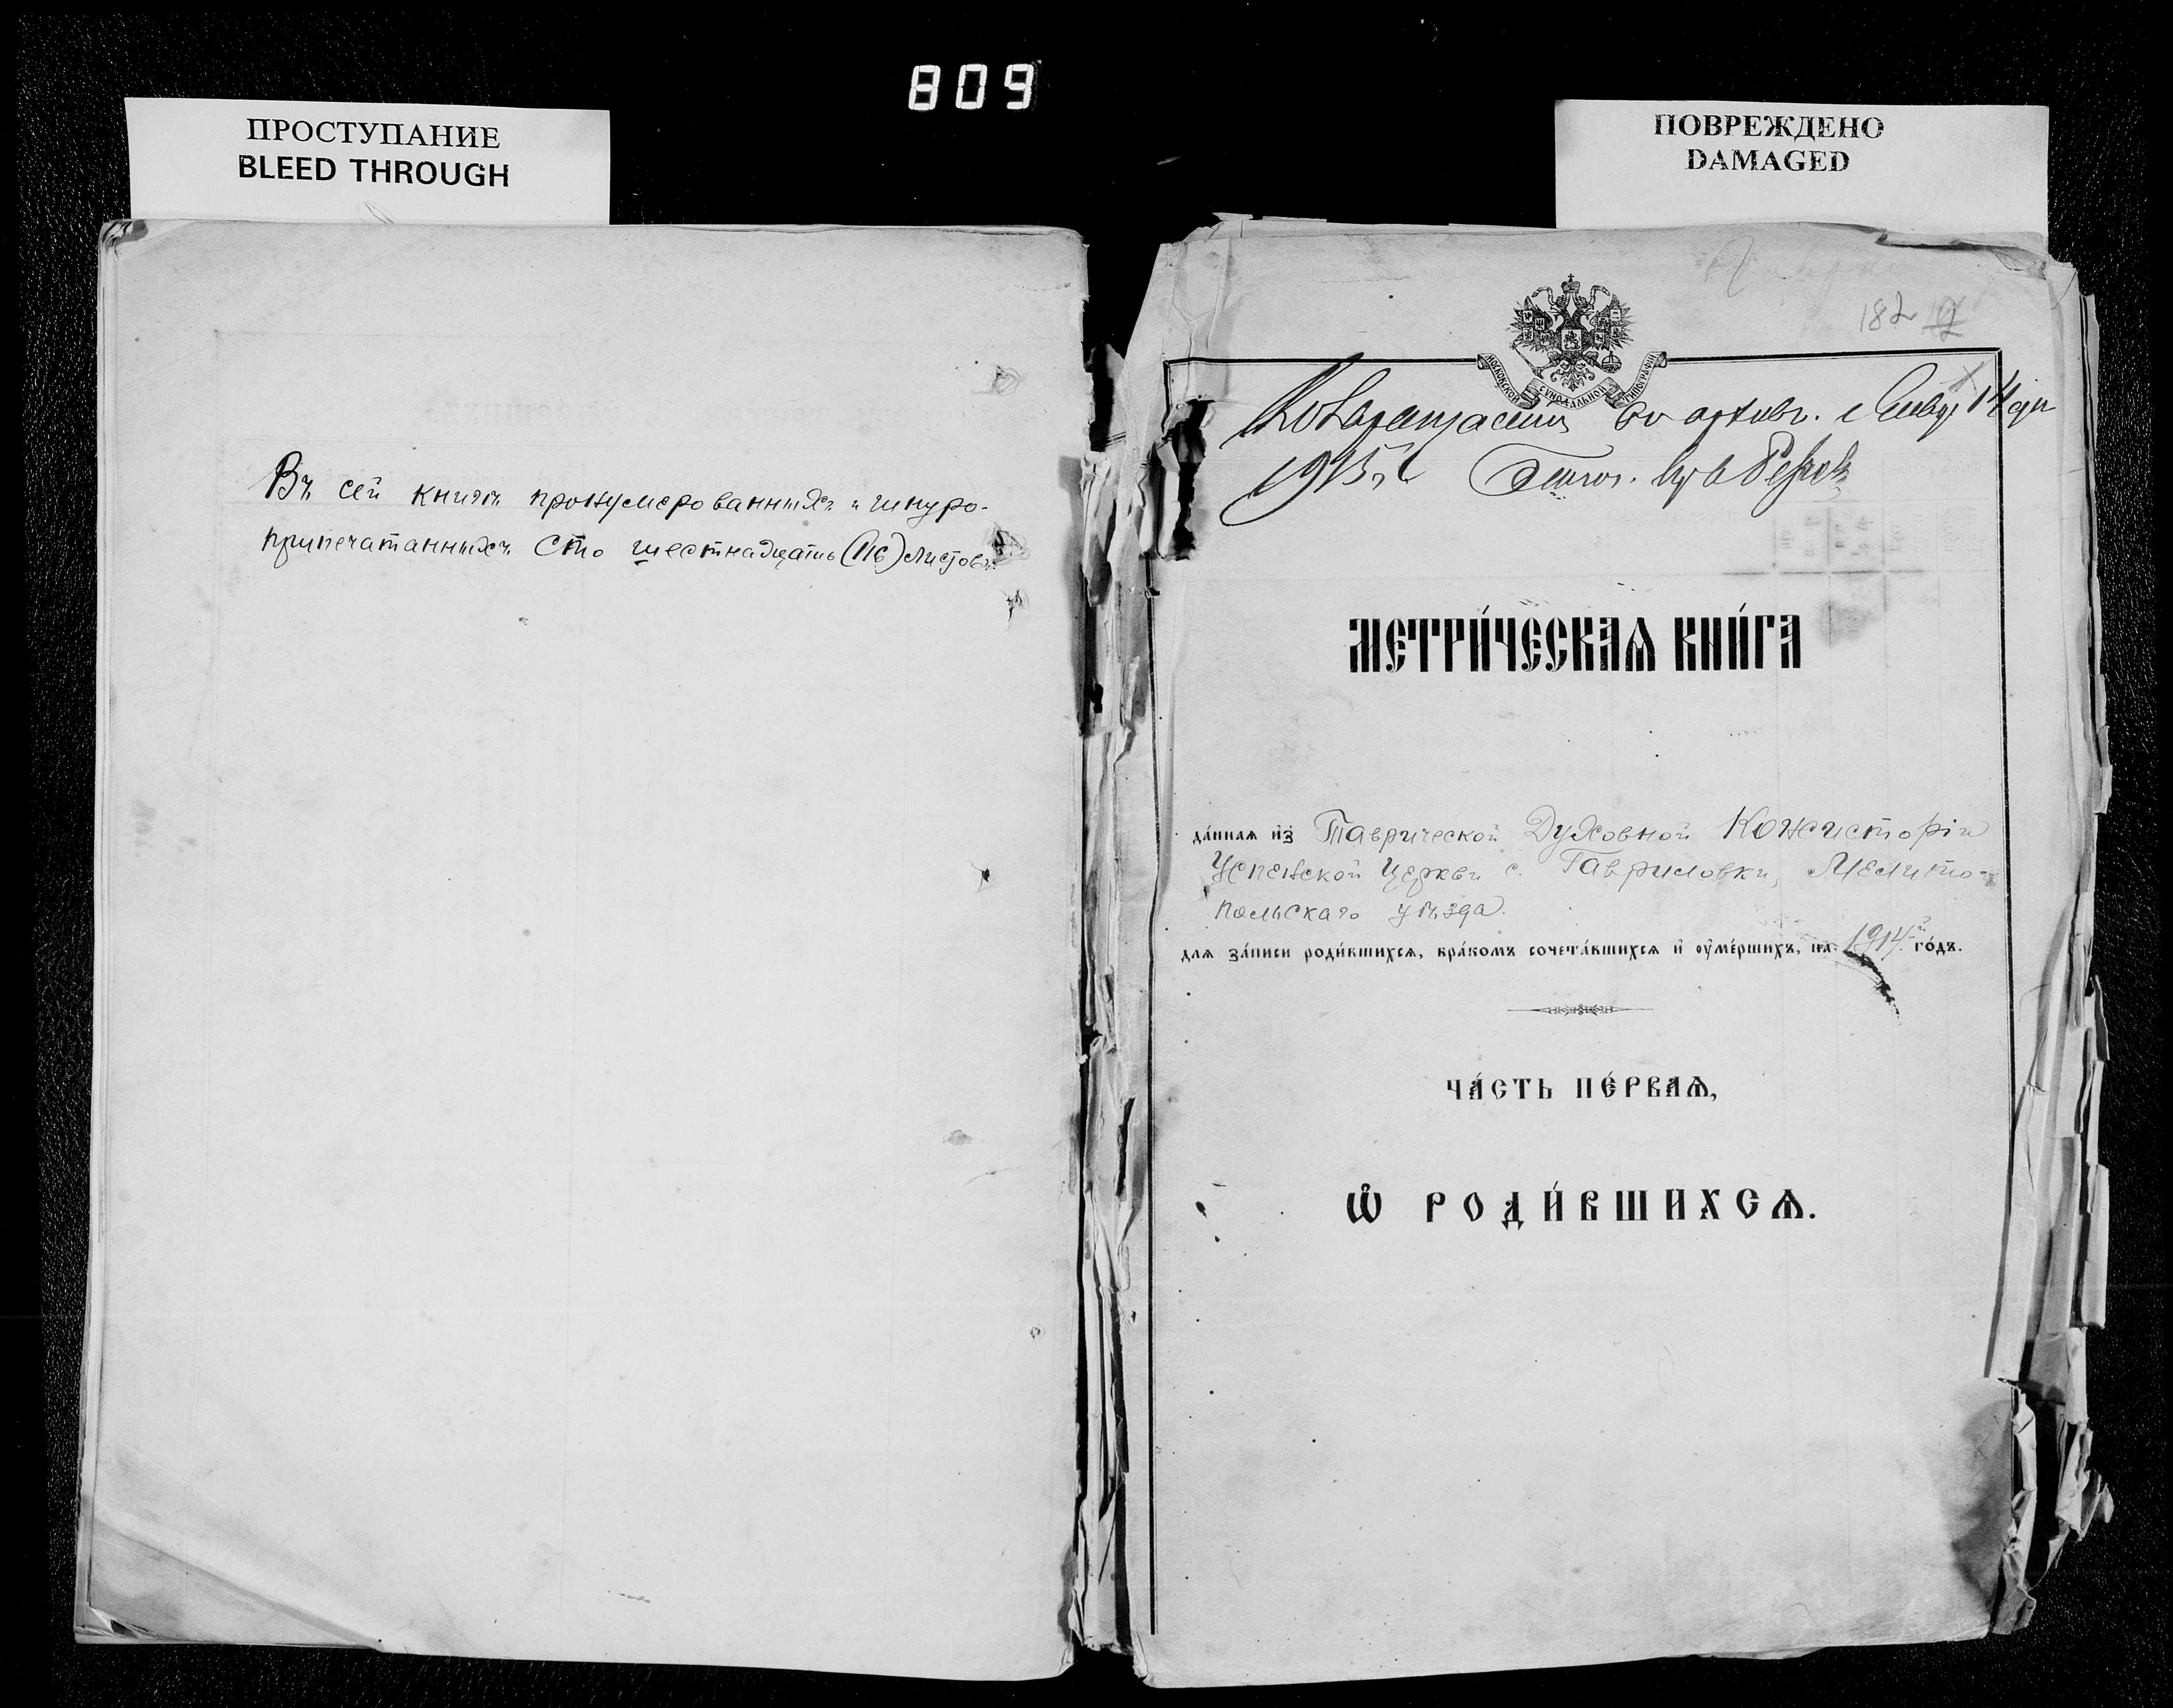 809
ПРОСТУПАНИЕ
BLEED THROUGH
ПОВРЕЖДЕНО
DAMAGED
Въ сей книгѣ пронумерованныхъ и шнуро-
припечатанныхъ сто шестнадцать (116) листовъ.
182
МОСКОВСКОЙ СѴНОДАЛЬНОЙ ТИПОГРАФІИ
въ архивъ. 14 дн
1915 г.
МЕТРИ́ЧЕСКАѦ КНИ́ГА
да́ннаѧ и҆з̾ Таврической Духовной Консисторіи
Успенской Церкви с. Гавриловки, Мелито-
польскаго уѣзда.
длѧ за́писи роди́вшихсѧ, бра́комъ сочета́вшихсѧ и҆ ᲂу҆ме́ршихъ, на 1914й го́дъ.
ЧА́СТЬ ПЕ́РВАѦ,
Ѡ҆ РОДИ́ВШИХСѦ.